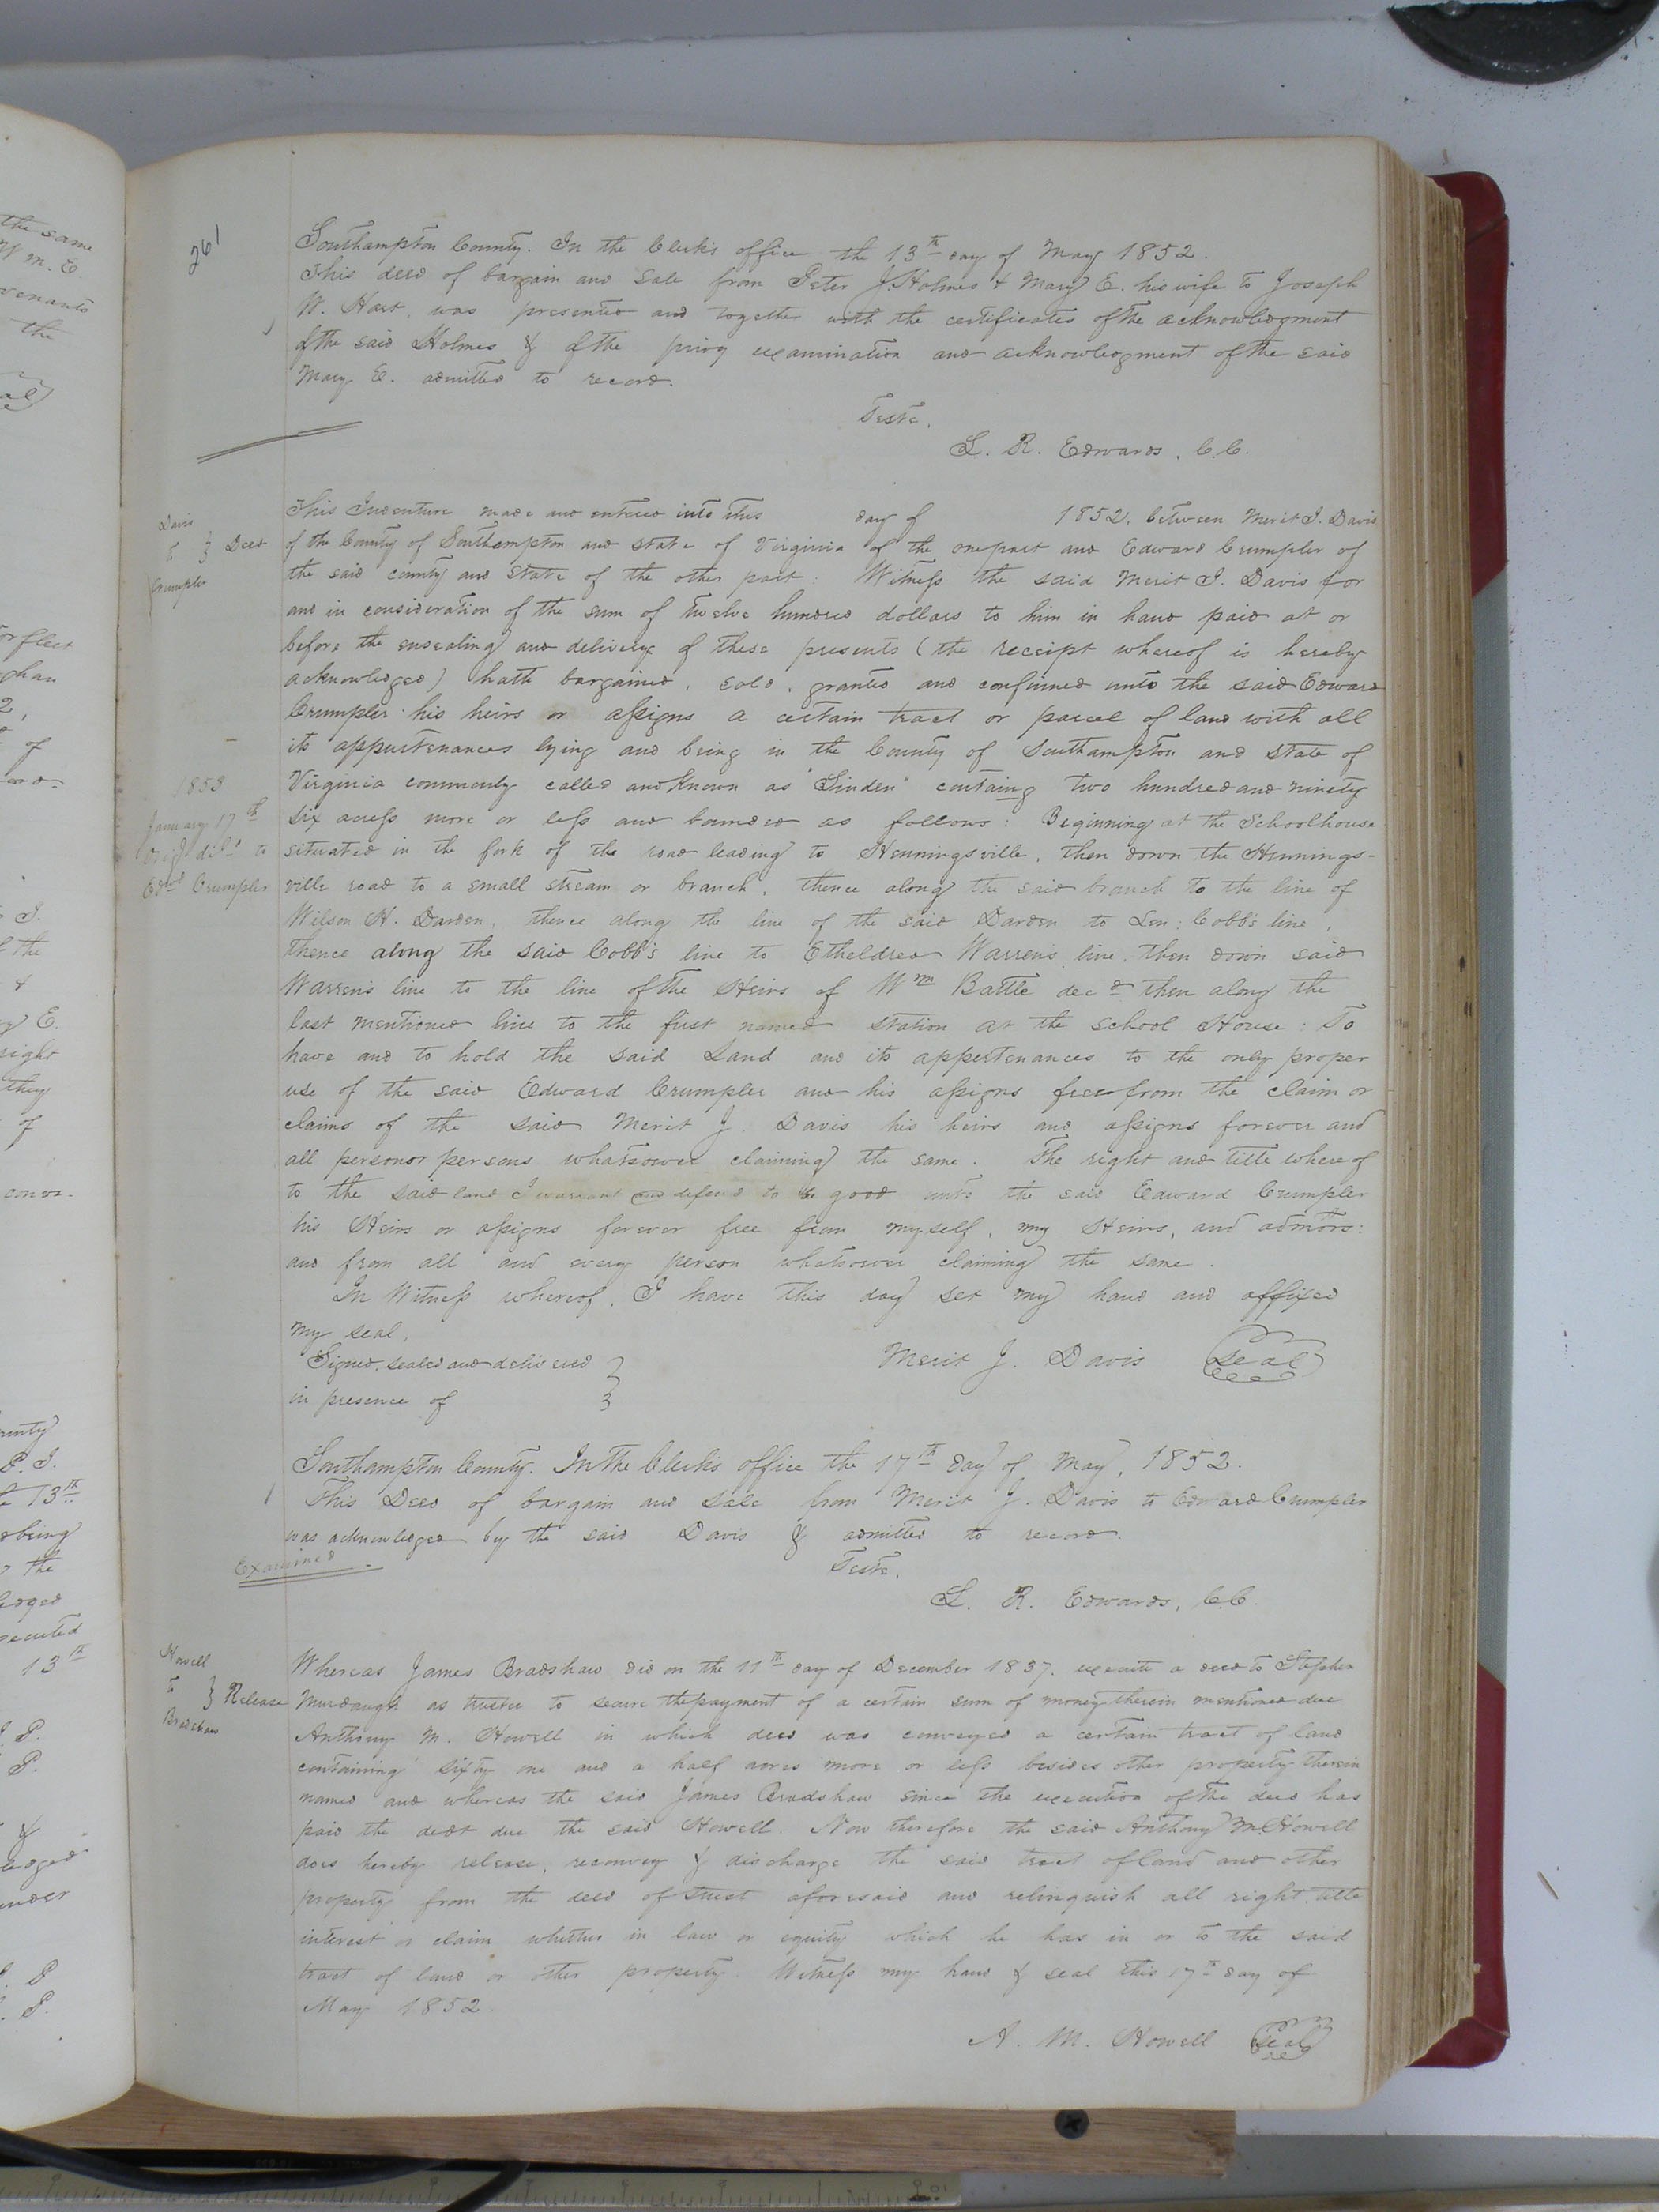 261
Southampton County. In the Clerk's office the 13th day of May 1852.
This deed of bargain and sale from Peter J. Holmes & Mary E. his wife to Joseph
W. Hart, was presented and together with the certificates of the acknowledgment
of the said Holmes & of the privy examination and acknowledgment of the said
Mary E. admitted to record.
Teste,
L. R. Edwards, C.C.
Davis
to } Deed
Crumpler
This Indenture made and entered into this day of 1852, between Merit J. Davis
of the County of Southampton and state of Virginia of the one part and Edward Crumpler of
the said county and State of the other part: Witness the said Merit J. Davis for
and in consideration of the sum of twelve hundred dollars to him in hand paid at or
before the ensealing and delivery of these presents (the receipt whereof is hereby
acknowledged) hath bargained, sold, granted and confirmed unto the said Edward
Crumpler his heirs or assigns a certain tract or parcel of land with all
its appurtenances lying and being in the County of Southampton and State of
Virginia commonly called and known as "Linden" containg two hundred and ninety
six acress more or less and bounded as follows: Beginning at the Schoolhouse
situated in the fork of the road leading to Henningsville, then down the Hennings-
ville road to a small stream or branch, thence along the said branch to the line of
Wilson H. Darden, thence along the line of the said Darden to Len: Cobb's line,
thence along the said Cobb's line to Etheldred Warren's line, then down said
Warren's line to the line of the Heirs of Wm Battle decd then along the
last mentioned line to the first named station at the School House: To
have and to hold the said Land and its appertenances to the only proper
use of the said Edward Crumpler and his assigns free from the claim or
claims of the said Merit J. Davis his heirs and assigns forever and
all person or persons whatsoever claiming the same. The right and title whereof
to the said land I warrant and defend to be good unto the said Edward Crumpler
his Heirs or assigns forever free from myself, my Heirs, and admors:
and from all and every person whatsoever claiming the same.
In Witness whereof, I have this day set my hand and affixed
my seal,
Signed, sealed and delivered }
in presence of }
Merit J. Davis Seal
1853
January 17th
Origl deld to
Edwd Crumpler
Southampton County. In the Clerk's office the 17th day of May, 1852.
This Deed of bargain and sale from Merit J. Davis to Edward Crumpler
was acknowledged by the said Davis & admitted to record.
Examined
Teste,
L. R. Edwards, C.C.
Howell
to } Release
Bradshaw
Whereas James Bradshaw did on the 11th day of December 1837, execute a deed to Stephen
Murdaugh as trustee to secure the payment of a certain sum of money therein mentioned due
Anthony M. Howell in which deed was conveyed a certain tract of land
containing sixty one and a half acres more or less besides other property therein
named and whereas the said James Bradshaw since the execution of the deed has
paid the debt due the said Howell. Now therefore the said Anthony M. Howell
does hereby release, reconvey & discharge the said tract of land and other
property from the deed of trust aforesaid and relinquish all right, title
interest or claim whether in law or equity which he has in or to the said
tract of land or other property Witness my hand & seal this 17th day of
May 1852
A. M. Howell Seal